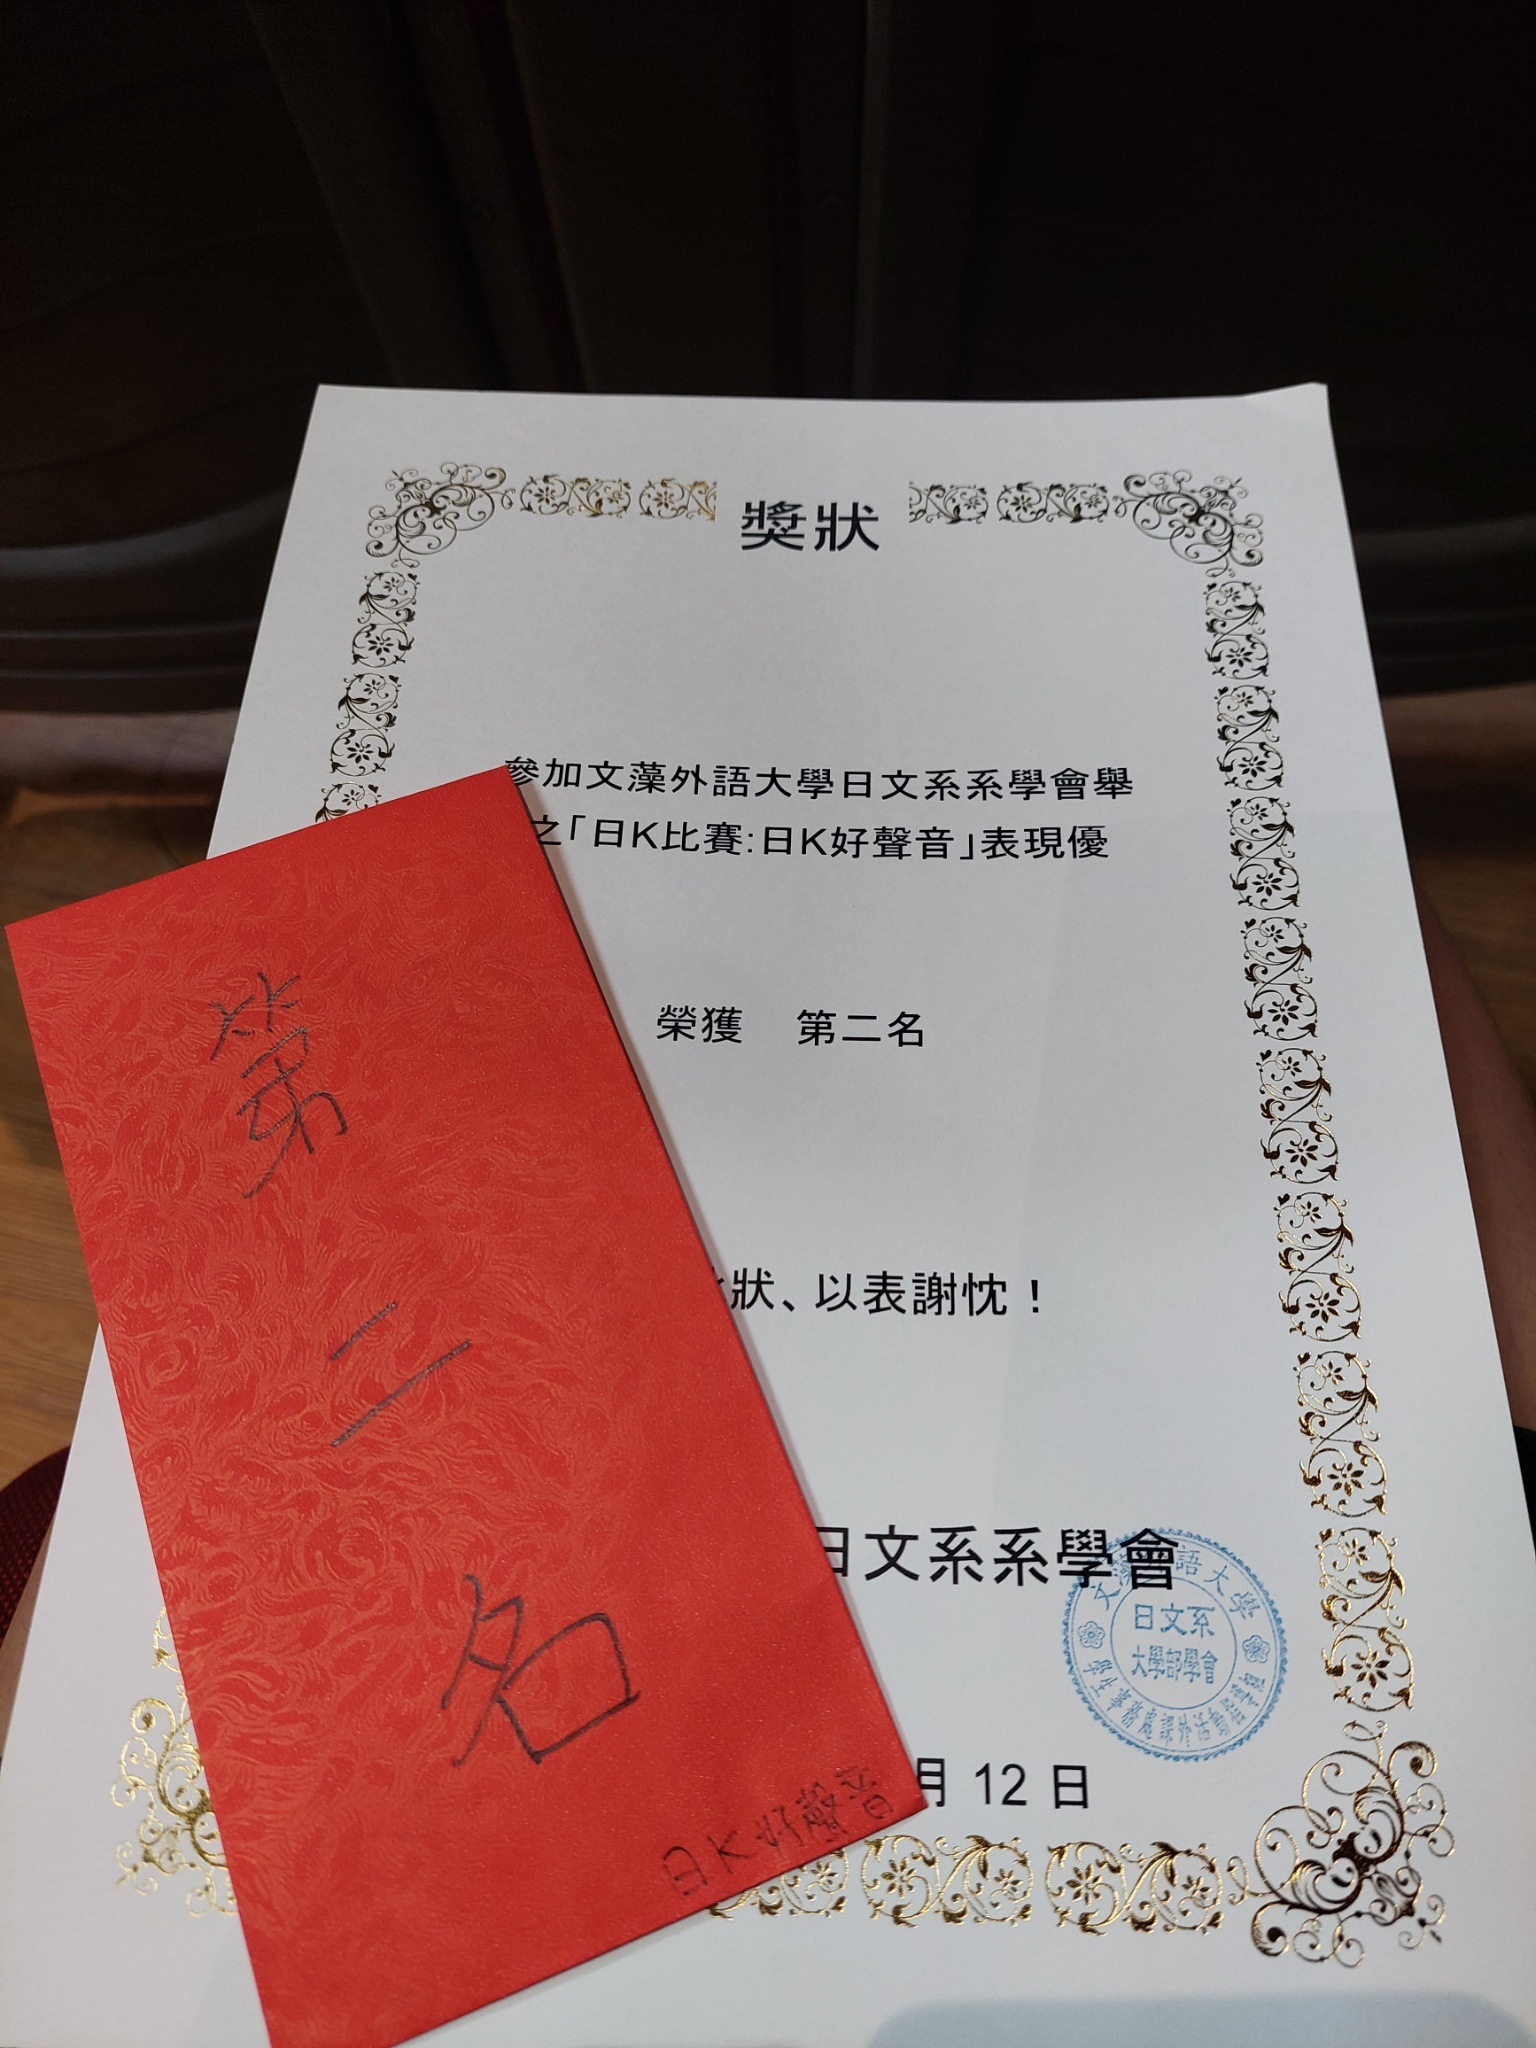 獎狀
參加文藻外語大學日文系系學會舉
之「日K比賽:日K好聲音」表現優
榮獲 第二名
狀、以表謝忱！
日文系系學會
文藻 語大學
日文系
大學部學會
學生事務處課外活動
月 12 日
第
二
名
日K好聲音